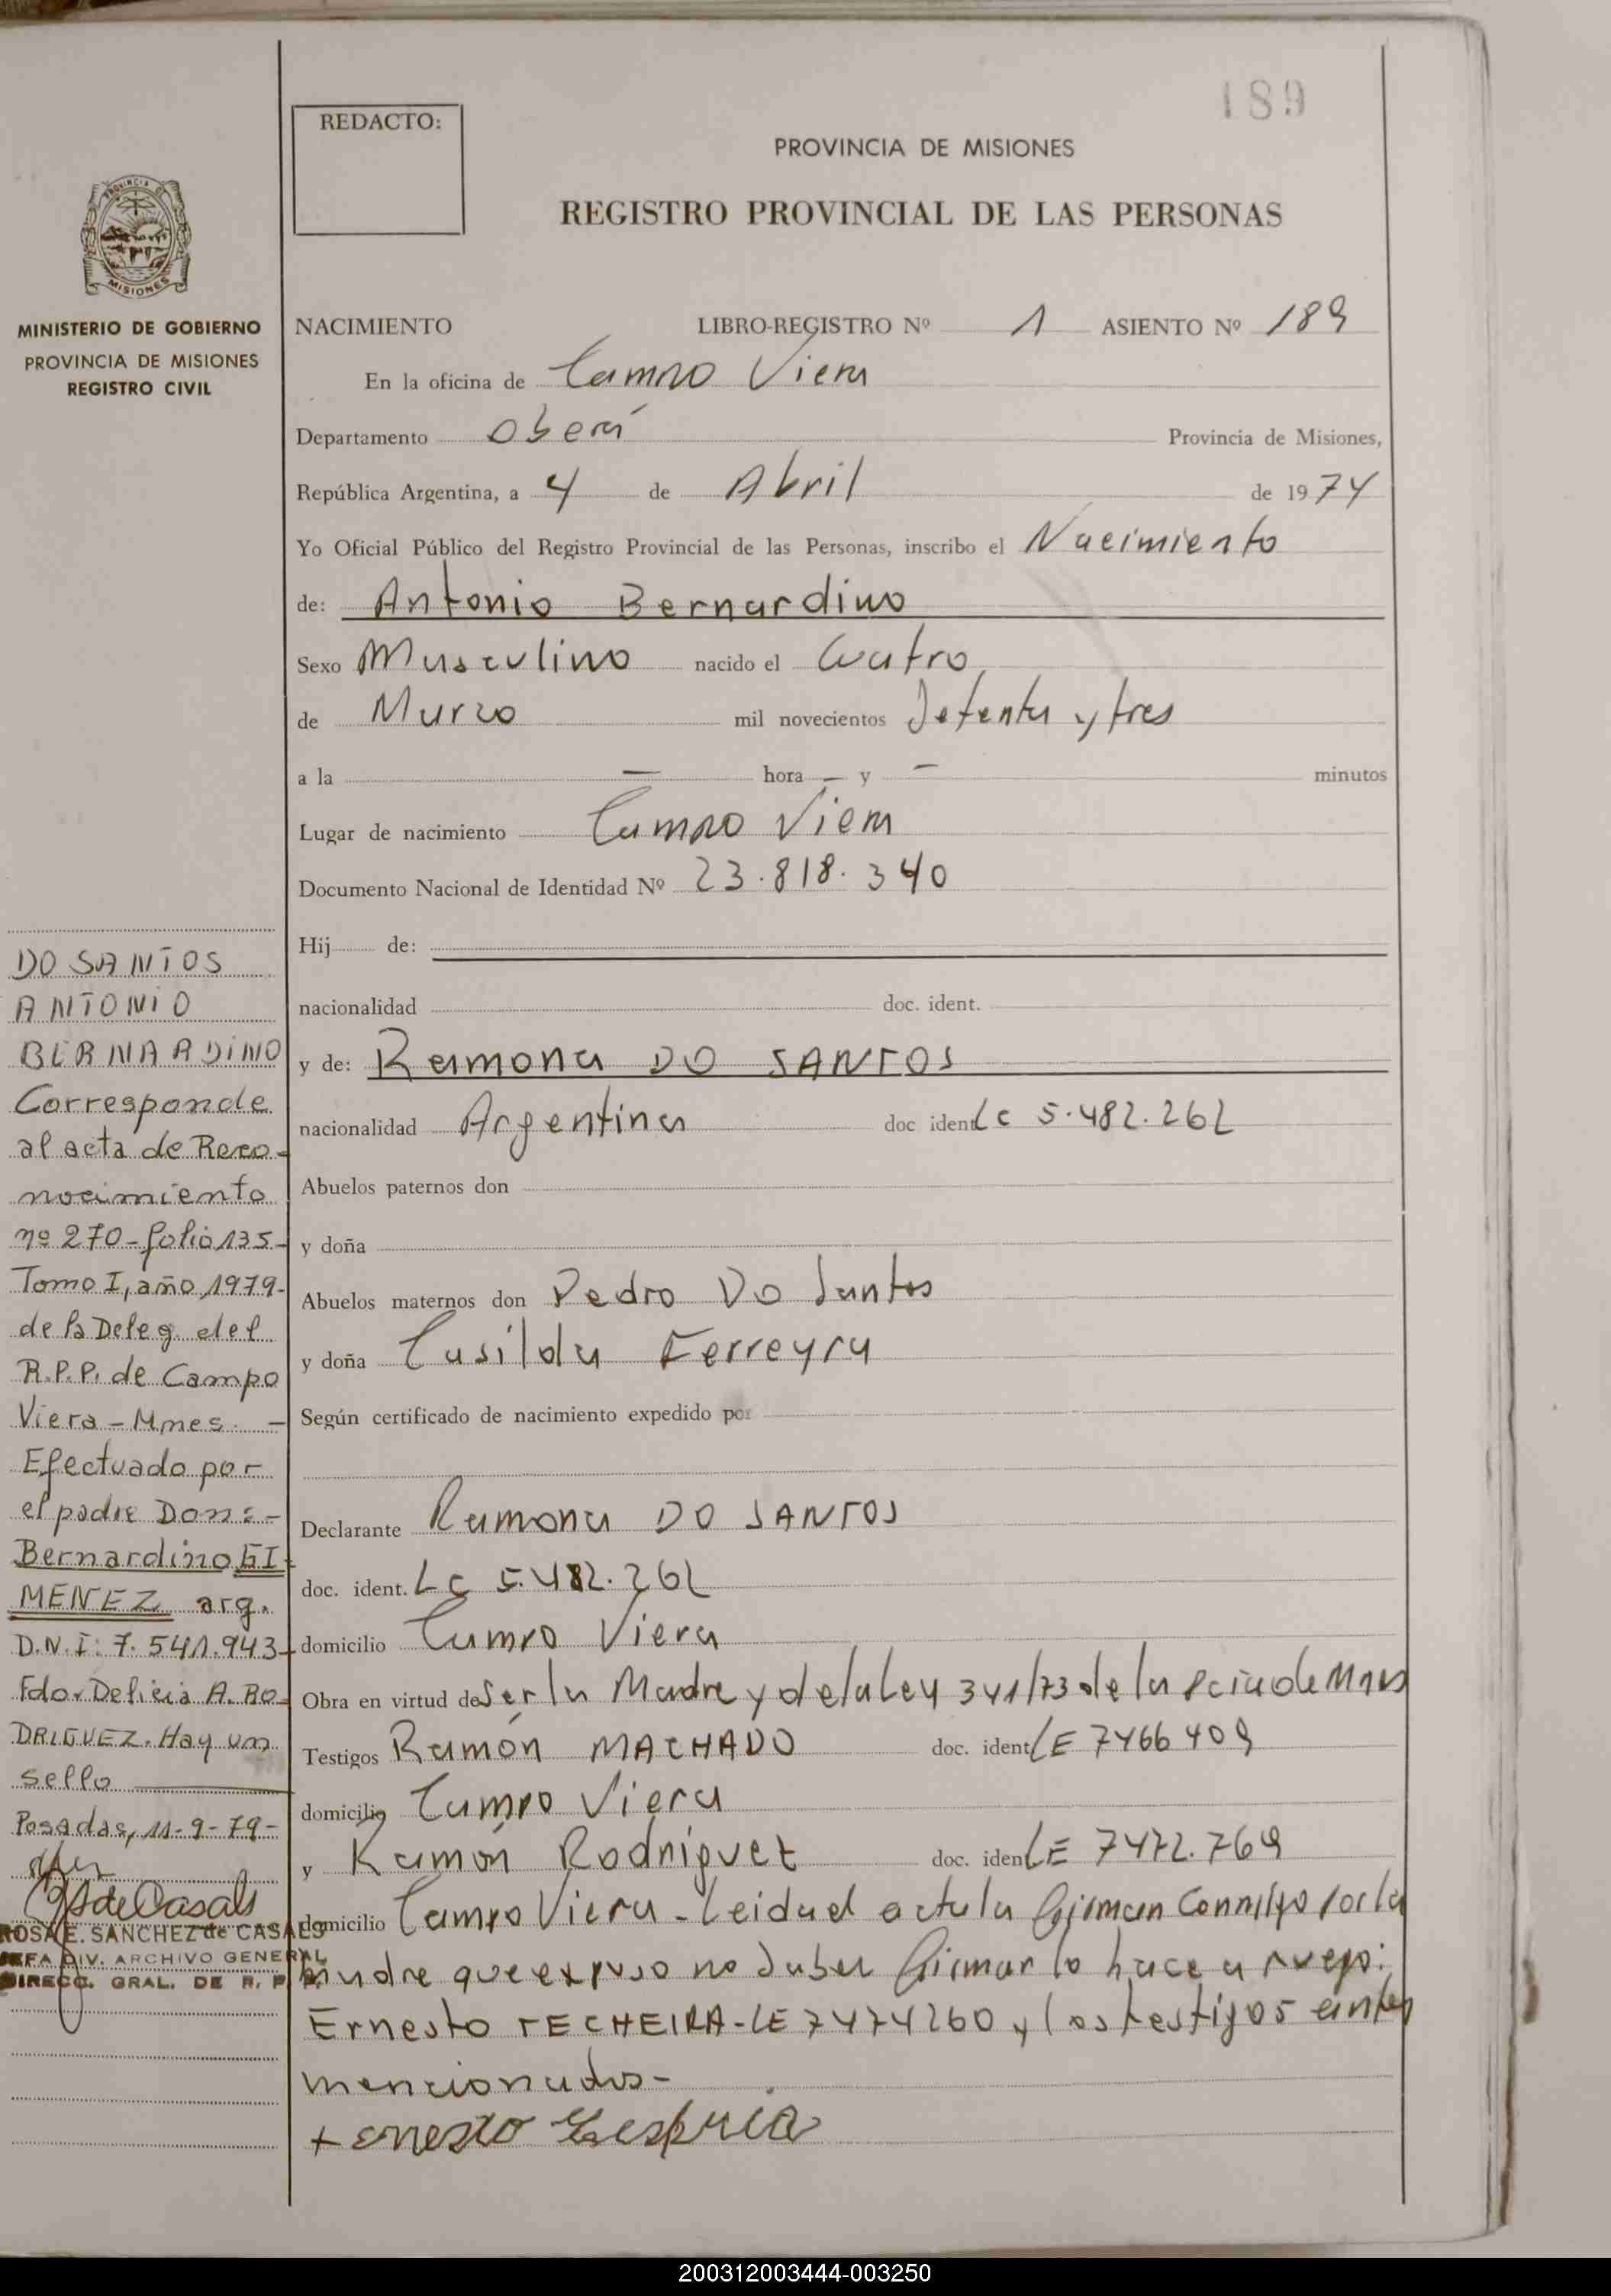 189
REDACTO:
PROVINCIA DE MISIONES
REGISTRO PROVINCIAL DE LAS PERSONAS
PROVINCIA DE
MISIONES
MINISTERIO DE GOBIERNO
PROVINCIA DE MISIONES
REGISTRO CIVIL
NACIMIENTO LIBRO-REGISTRO Nº 1 ASIENTO Nº 189
En la oficina de Campo Viera
Departamento Oberá Provincia de Misiones,
República Argentina, a 4 de Abril de 1974
Yo Oficial Público del Registro Provincial de las Personas, inscribo el Nacimiento
de: Antonio Bernardino
Sexo Masculino nacido el Cuatro
de Marzo mil novecientos Setenta y tres
a la — hora — y — minutos
Lugar de nacimiento Campo Viera
Documento Nacional de Identidad Nº 23.818.340
Hij de:
nacionalidad doc. ident.
y de: Ramona DO SANTOS
nacionalidad Argentina doc ident LC 5.482.262
Abuelos paternos don
y doña
Abuelos maternos don Pedro Do Santos
y doña Casilda Ferreyra
Según certificado de nacimiento expedido por
Declarante Ramona DO SANTOS
doc. ident. LC 5.482.262
domicilio Campo Viera
Obra en virtud de Ser la Madre y de la Ley 341/73 de la Pcia de Mnes
Testigos Ramón MACHADO doc. ident LE 7466409
domicilio Campo Viera
y Ramón Rodríguez doc. iden LE 7472.769
domicilio Campo Viera - Leida el acta la firman Conmigo por la
madre que expuso no Saber firmar lo hace a ruego:
Ernesto TECHEIRA - LE 7474260 y los testigos antes
mencionados -
+ Ernesto
DO SANTOS
ANTONIO
BERNARDINO
Corresponde
al acta de Reco-
nocimiento
nº 270 - folio 135 -
Tomo I, año 1979 -
de la Deleg. del
R.P.P. de Campo
Viera - Mnes. -
Efectuado por
el padre Don: -
Bernardino GI-
MENEZ arg.
D.N.I: 7.541.943 -
Fdo. Delicia A. RO-
DRIGUEZ. Hay un
sello
Posadas, 11-9-79 -
RdeCasals
ROSA E. SANCHEZ de CASALS
JEFA DIV. ARCHIVO GENERAL
DIRECC. GRAL. DE R. P. P.
200312003444-003250